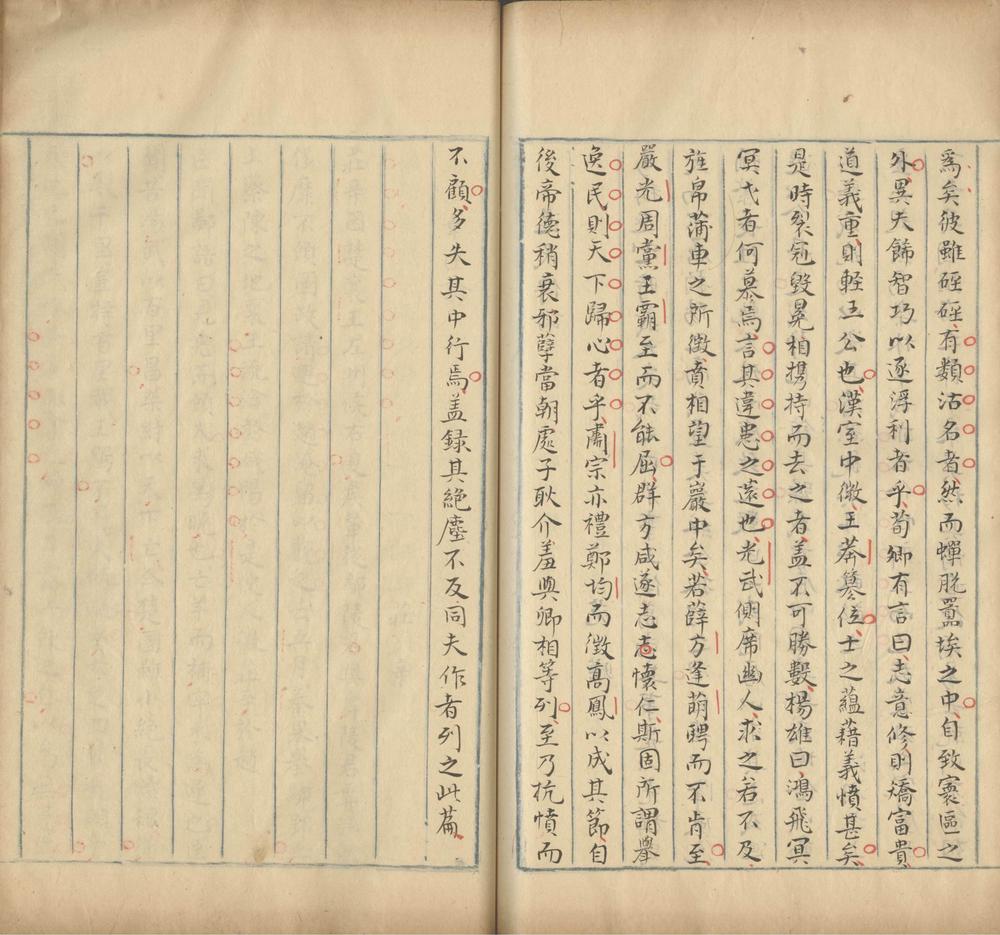 爲矣彼雖硜硜有類沽名者然而蟬脫囂埃之中自致寰區之
外異夫飾智巧以逐浮利者乎荀卿有言曰志意修則矯富貴
道義重則輕王公也漢室中微王莽篡位士之蘊藉義憤甚矣
是時裂冠毀冕相携持而去之者盖不可勝數楊雄曰鴻飛冥
冥弋者何慕焉言其違患之遠也光武側席幽人求之若不及
旌帛蒲車之所徵賁相望于巖中矣若薛方逢萌聘而不肯至
嚴光周黨王霸至而不能屈群方咸遂志志懷仁斯固所謂舉
逸民則天下歸心者乎肅宗亦禮鄭均而徵高鳳以成其節自
後帝德稍衰邪孽當朝處子耿介羞與卿相等列至乃抗憤而
不顧多失其中行焉盖録其絶塵不反同夫作者列之此篇